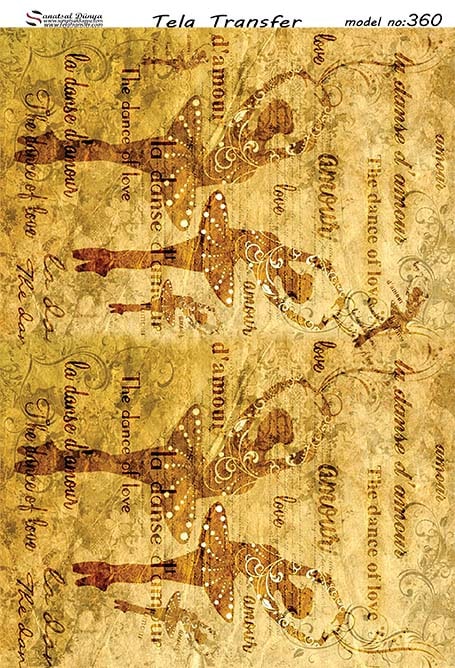 Sanatsal Dünya
www.sanatsaldunya.com
www.telatransfer.com
Tela Transfer
model no:360
d'amour
love
la danse d'amour
amour
la danse d'amour
The dance of love
The dance of love
amour
The dance of love
la danse d'amour
love
The dance of love
la da
The dan
amour
d'amour
love
la danse d'amour
amour
la danse d'amour
The dance of love
The dance of love
amour
The dance of love
la danse d'amour
love
la da
The dan
amour